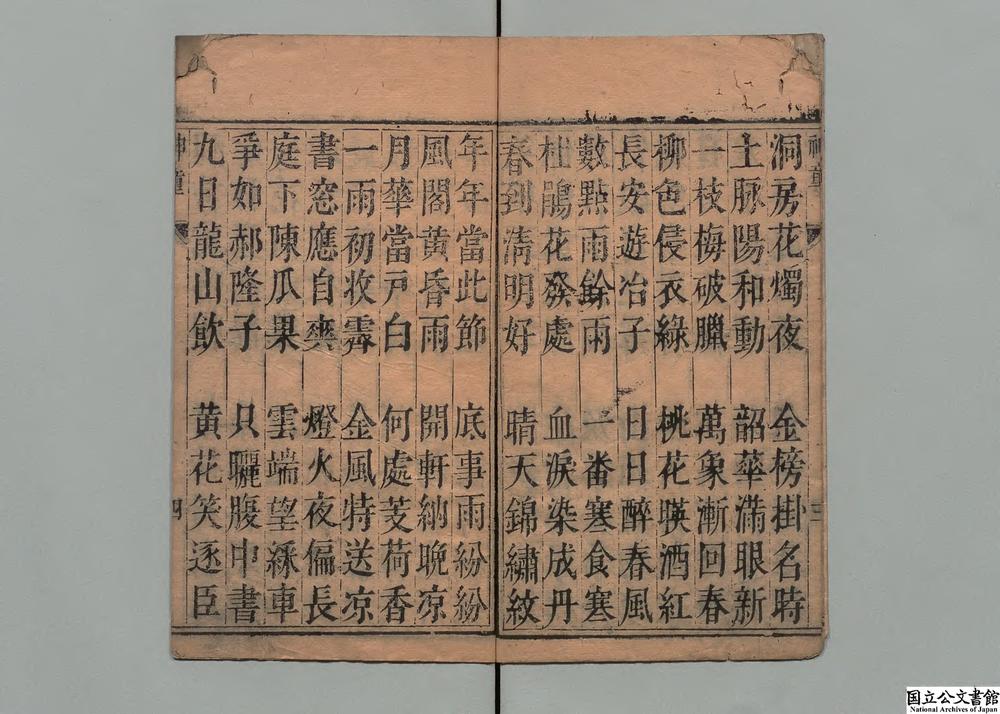 洞房花燭夜　金榜掛名時
土脉陽和動　韶華滿眼新
一枝梅破臘　萬象漸回春
柳色侵衣綠　桃花暎酒紅
長安遊冶子　日日醉春風
數點雨餘雨　一番寒食寒
杜鵑花發處　血淚染成丹
春到清明好　晴天錦繡紋
年年當此節　底事雨紛紛
風閣黃昏雨　開軒納晚凉
月華當戸白　何處芰荷香
一雨初收霽　金風特送凉
書窓應自爽　燈火夜偏長
庭下陳瓜果　雲端望綵車
爭如郝隆子　只曬腹中書
九日龍山飲　黃花笑逐臣
神童
四
国立公文書館
National Archives of Japan